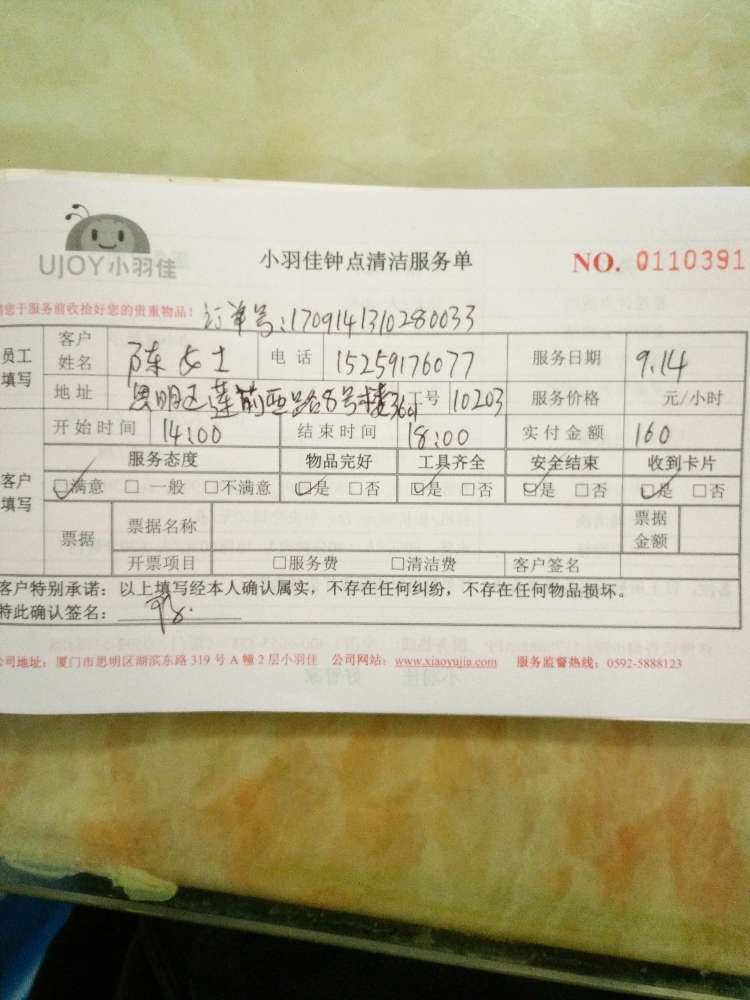 UJOY小羽佳
小羽佳钟点清洁服务单
NO. 0110391
您于服务前收拾好您的贵重物品！ 订单号:1709141310280033
员工填写 客户姓名 陈女士 电话 15259176077 服务日期 9.14
地址 思明区莲前西路8号楼3601 工号 10203 服务价格 元/小时
客户填写 开始时间 14:00 结束时间 18:00 实付金额 160
服务态度 物品完好 工具齐全 安全结束 收到卡片
☑满意 □一般 □不满意 ☑是 □否 ☑是 □否 ☑是 □否 ☑是 □否
票据 票据名称 票据金额
开票项目 □服务费 □清洁费 客户签名
客户特别承诺：以上填写经本人确认属实，不存在任何纠纷，不存在任何物品损坏。
特此确认签名：
公司地址：厦门市思明区湖滨东路 319 号 A 幢 2 层小羽佳 公司网站：www.xiaoyujia.com 服务监督热线：0592-5888123